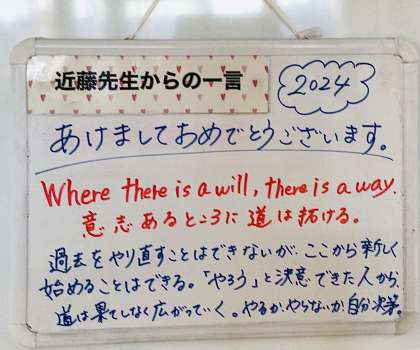 近藤先生からの一言
2024
あけましておめでとうございます。
Where there is a will, there is a way.
意志あるところに道は拓ける。
過去をやり直すことはできないが、ここから新しく
始めることはできる。「やろう」と決意できた人から、
道は果てしなく広がっていく。やるか、やらないか、自分次第。